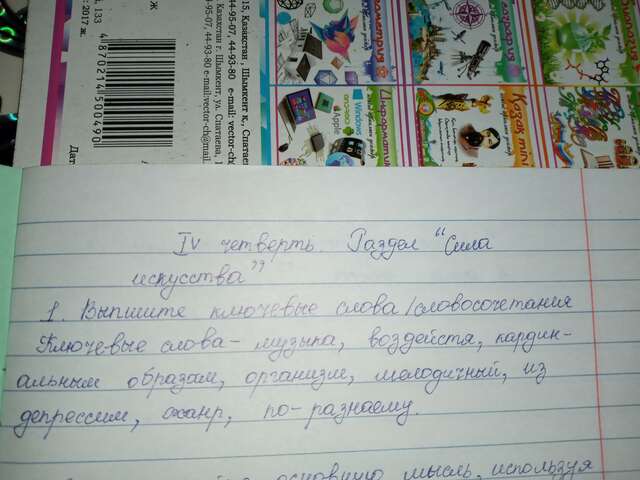 Ж
15, Казахстан, Шымкент к., Спатаева
44-95-07, 44-93-80 e-mail: vector-ch
Казахстан г. Шымкент, ул. Спатаева, 1
95-07, 44-93-80 e-mail:vector-ch@mail.
133
: 2017 ж.
4 870214 500490
Дат
Геометрия
География
Информатика
Windows
android
Apple
Қазақ тілі
IV четверть. Раздел "Сила
искусства"
1. Выпишите ключевые слова/словосочетания
Ключевые слова- музыка, воздейстя, кардин-
альным образам, организм, мелодичный, из
депрессим, жанр, по-разнаему.
основную мысль, используя